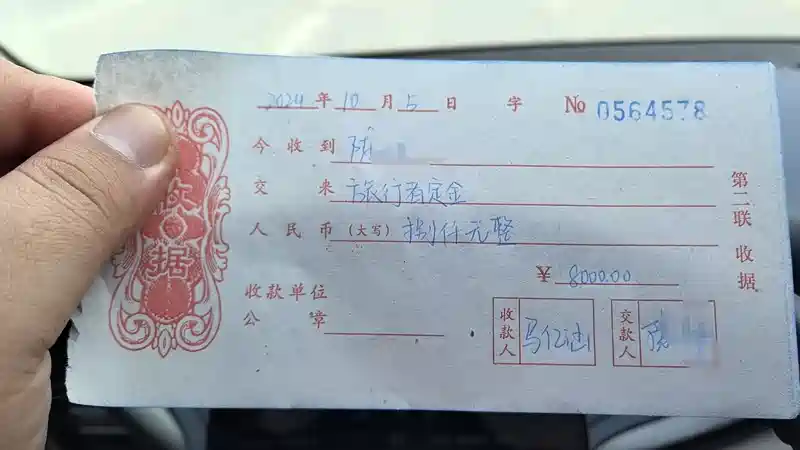 2024年10月5日 字 № 0564578
今收到
交来 旅行者定金
人民币（大写） 捌仟元整
¥ 8000.00
收款单位
公章
收款人 马亿涵
交款人
收据
第二联 收据